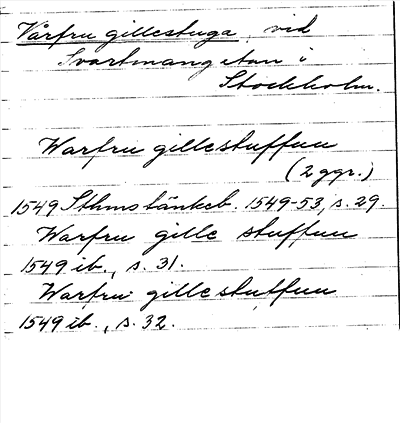 Vårfru gillestuga, vid
Svartmangatan i
Stockholm.
Warfru gillestuffun
(2 ggr.)
1549 Sthms tänkeb. 1549-53, s. 29.
Warfru gille stuffun
1549 ib., s. 31.
Warfru gillestuffun
1549 ib., s. 32.